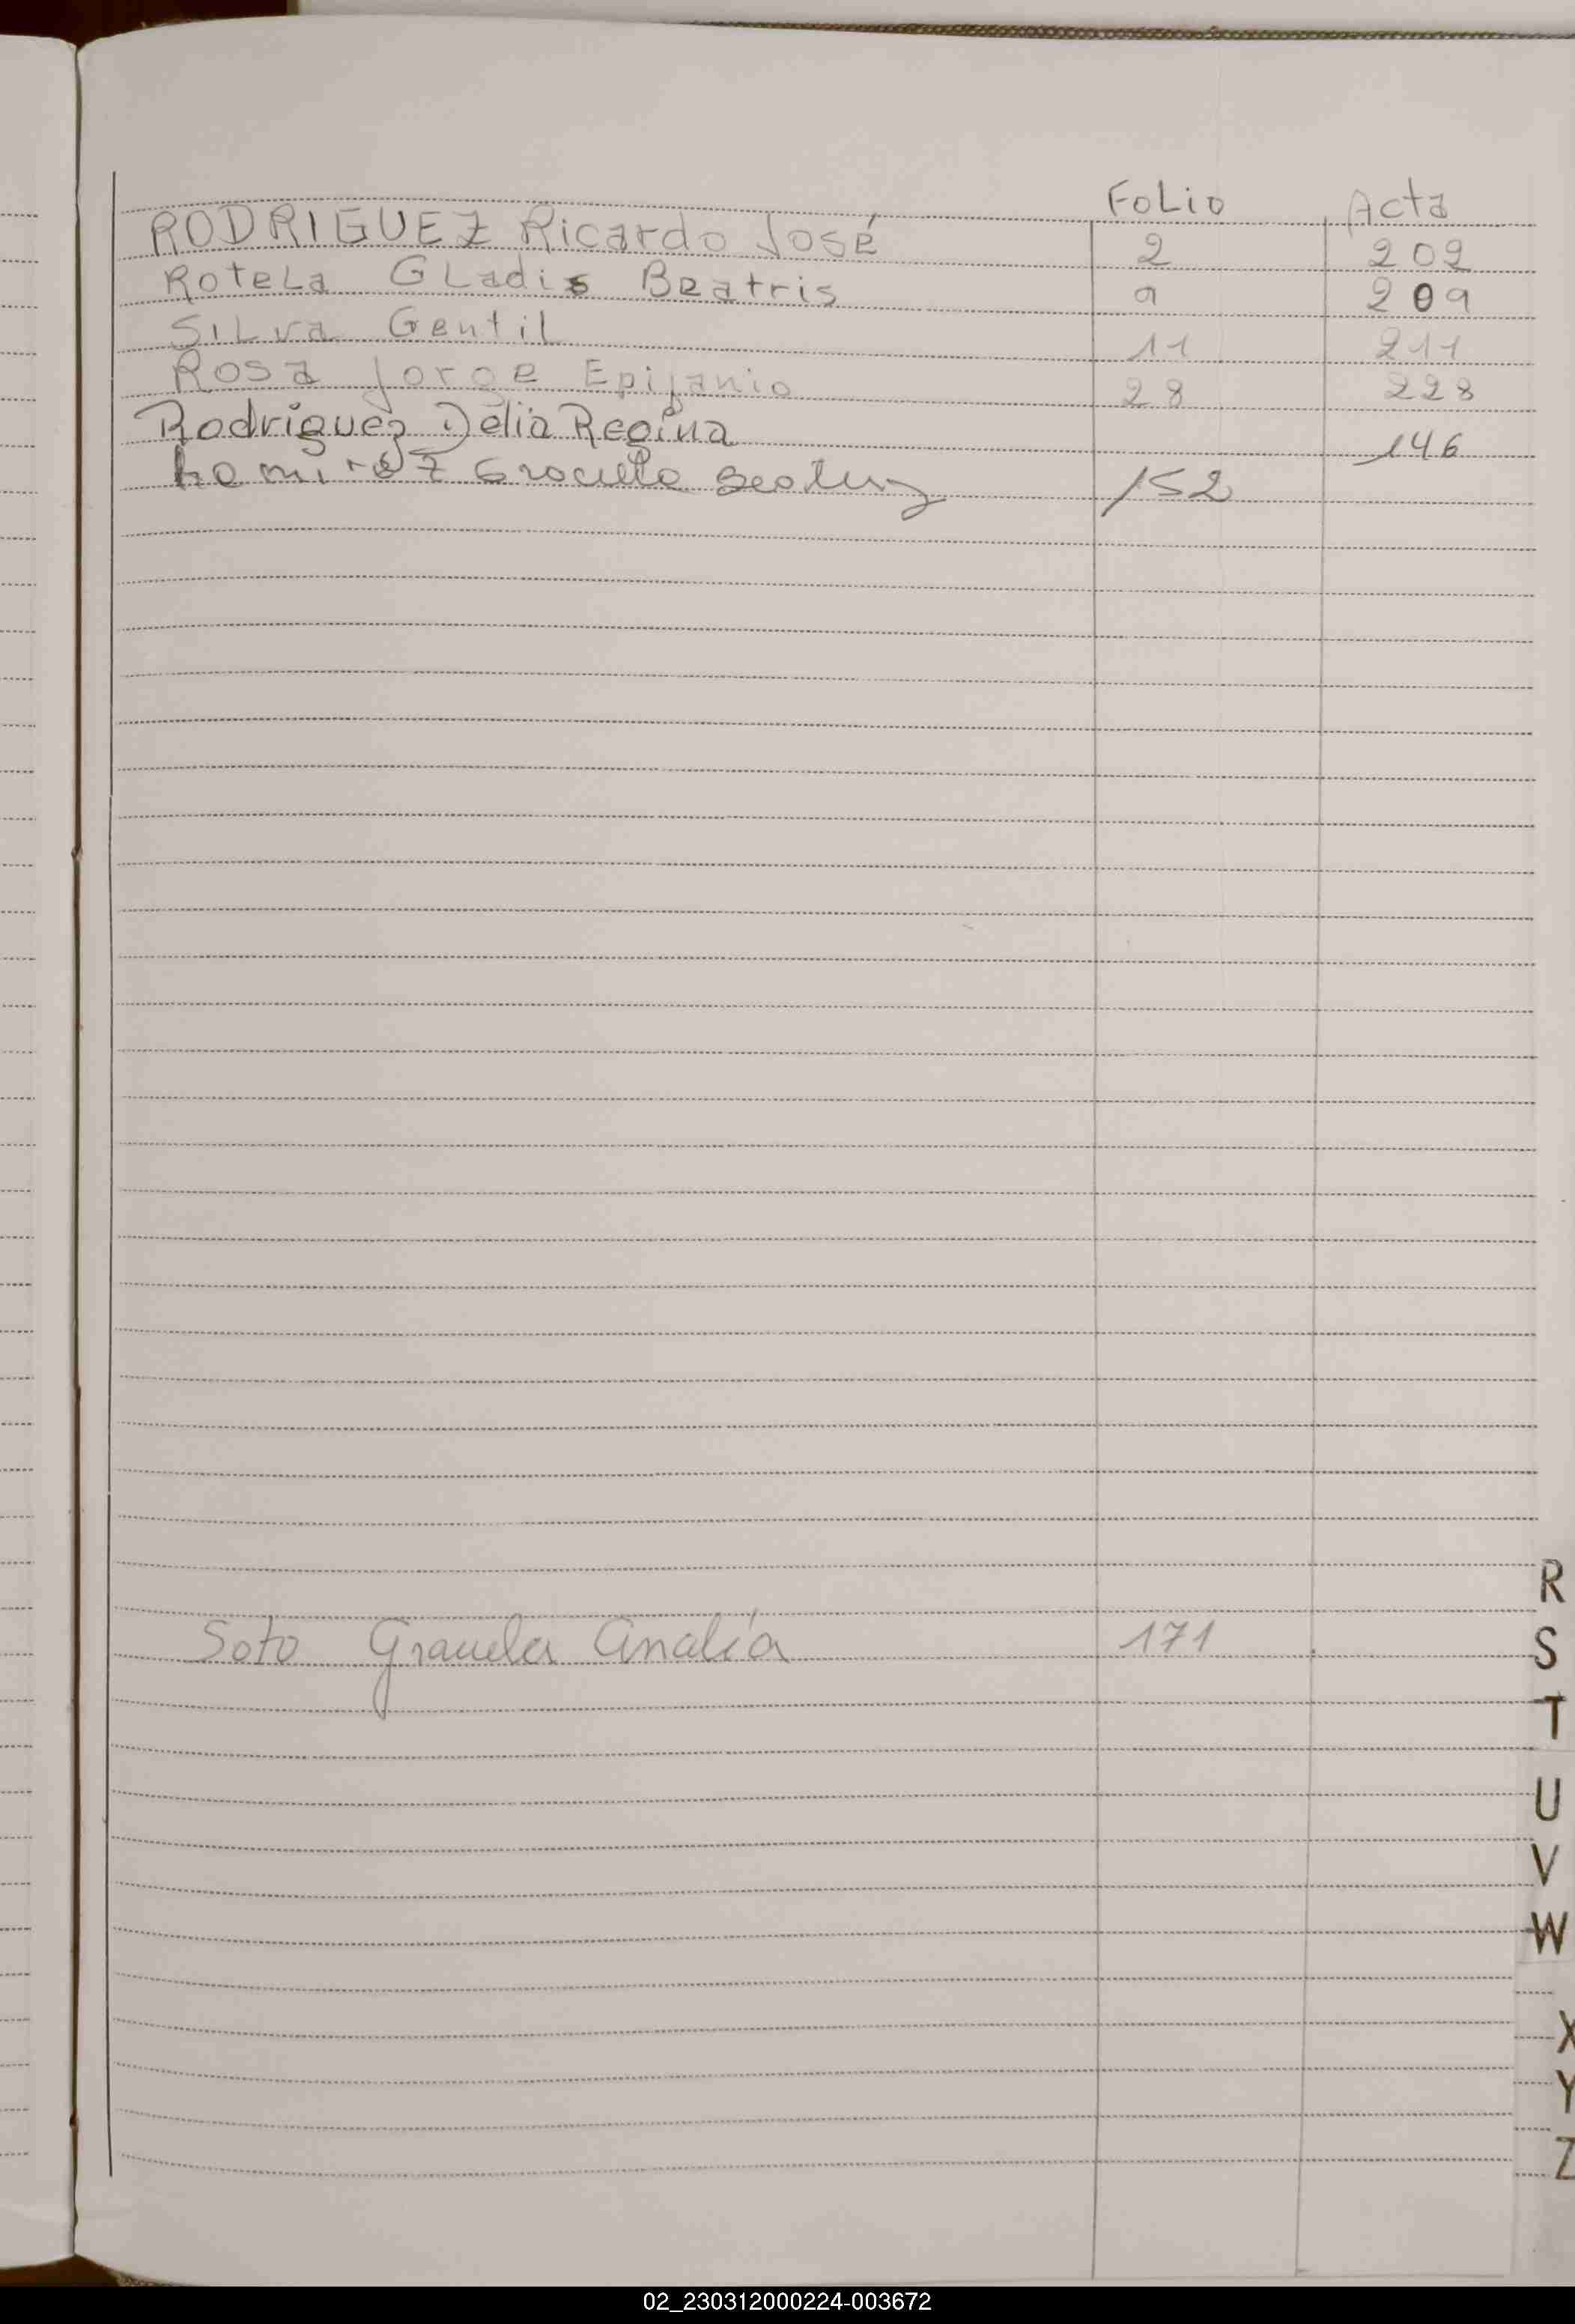 Folio Acta
RODRIGUEZ Ricardo José 2 202
Rotela Gladis Beatris 9 209
Silva Gentil 11 211
Rosa Jorge Epifanio 28 228
Rodriguez Delia Regina 146
Ramirez Graciela Beatriz 152
Soto Graciela Analía 171
R
S
T
U
V
W
X
Y
Z
02_230312000224-003672